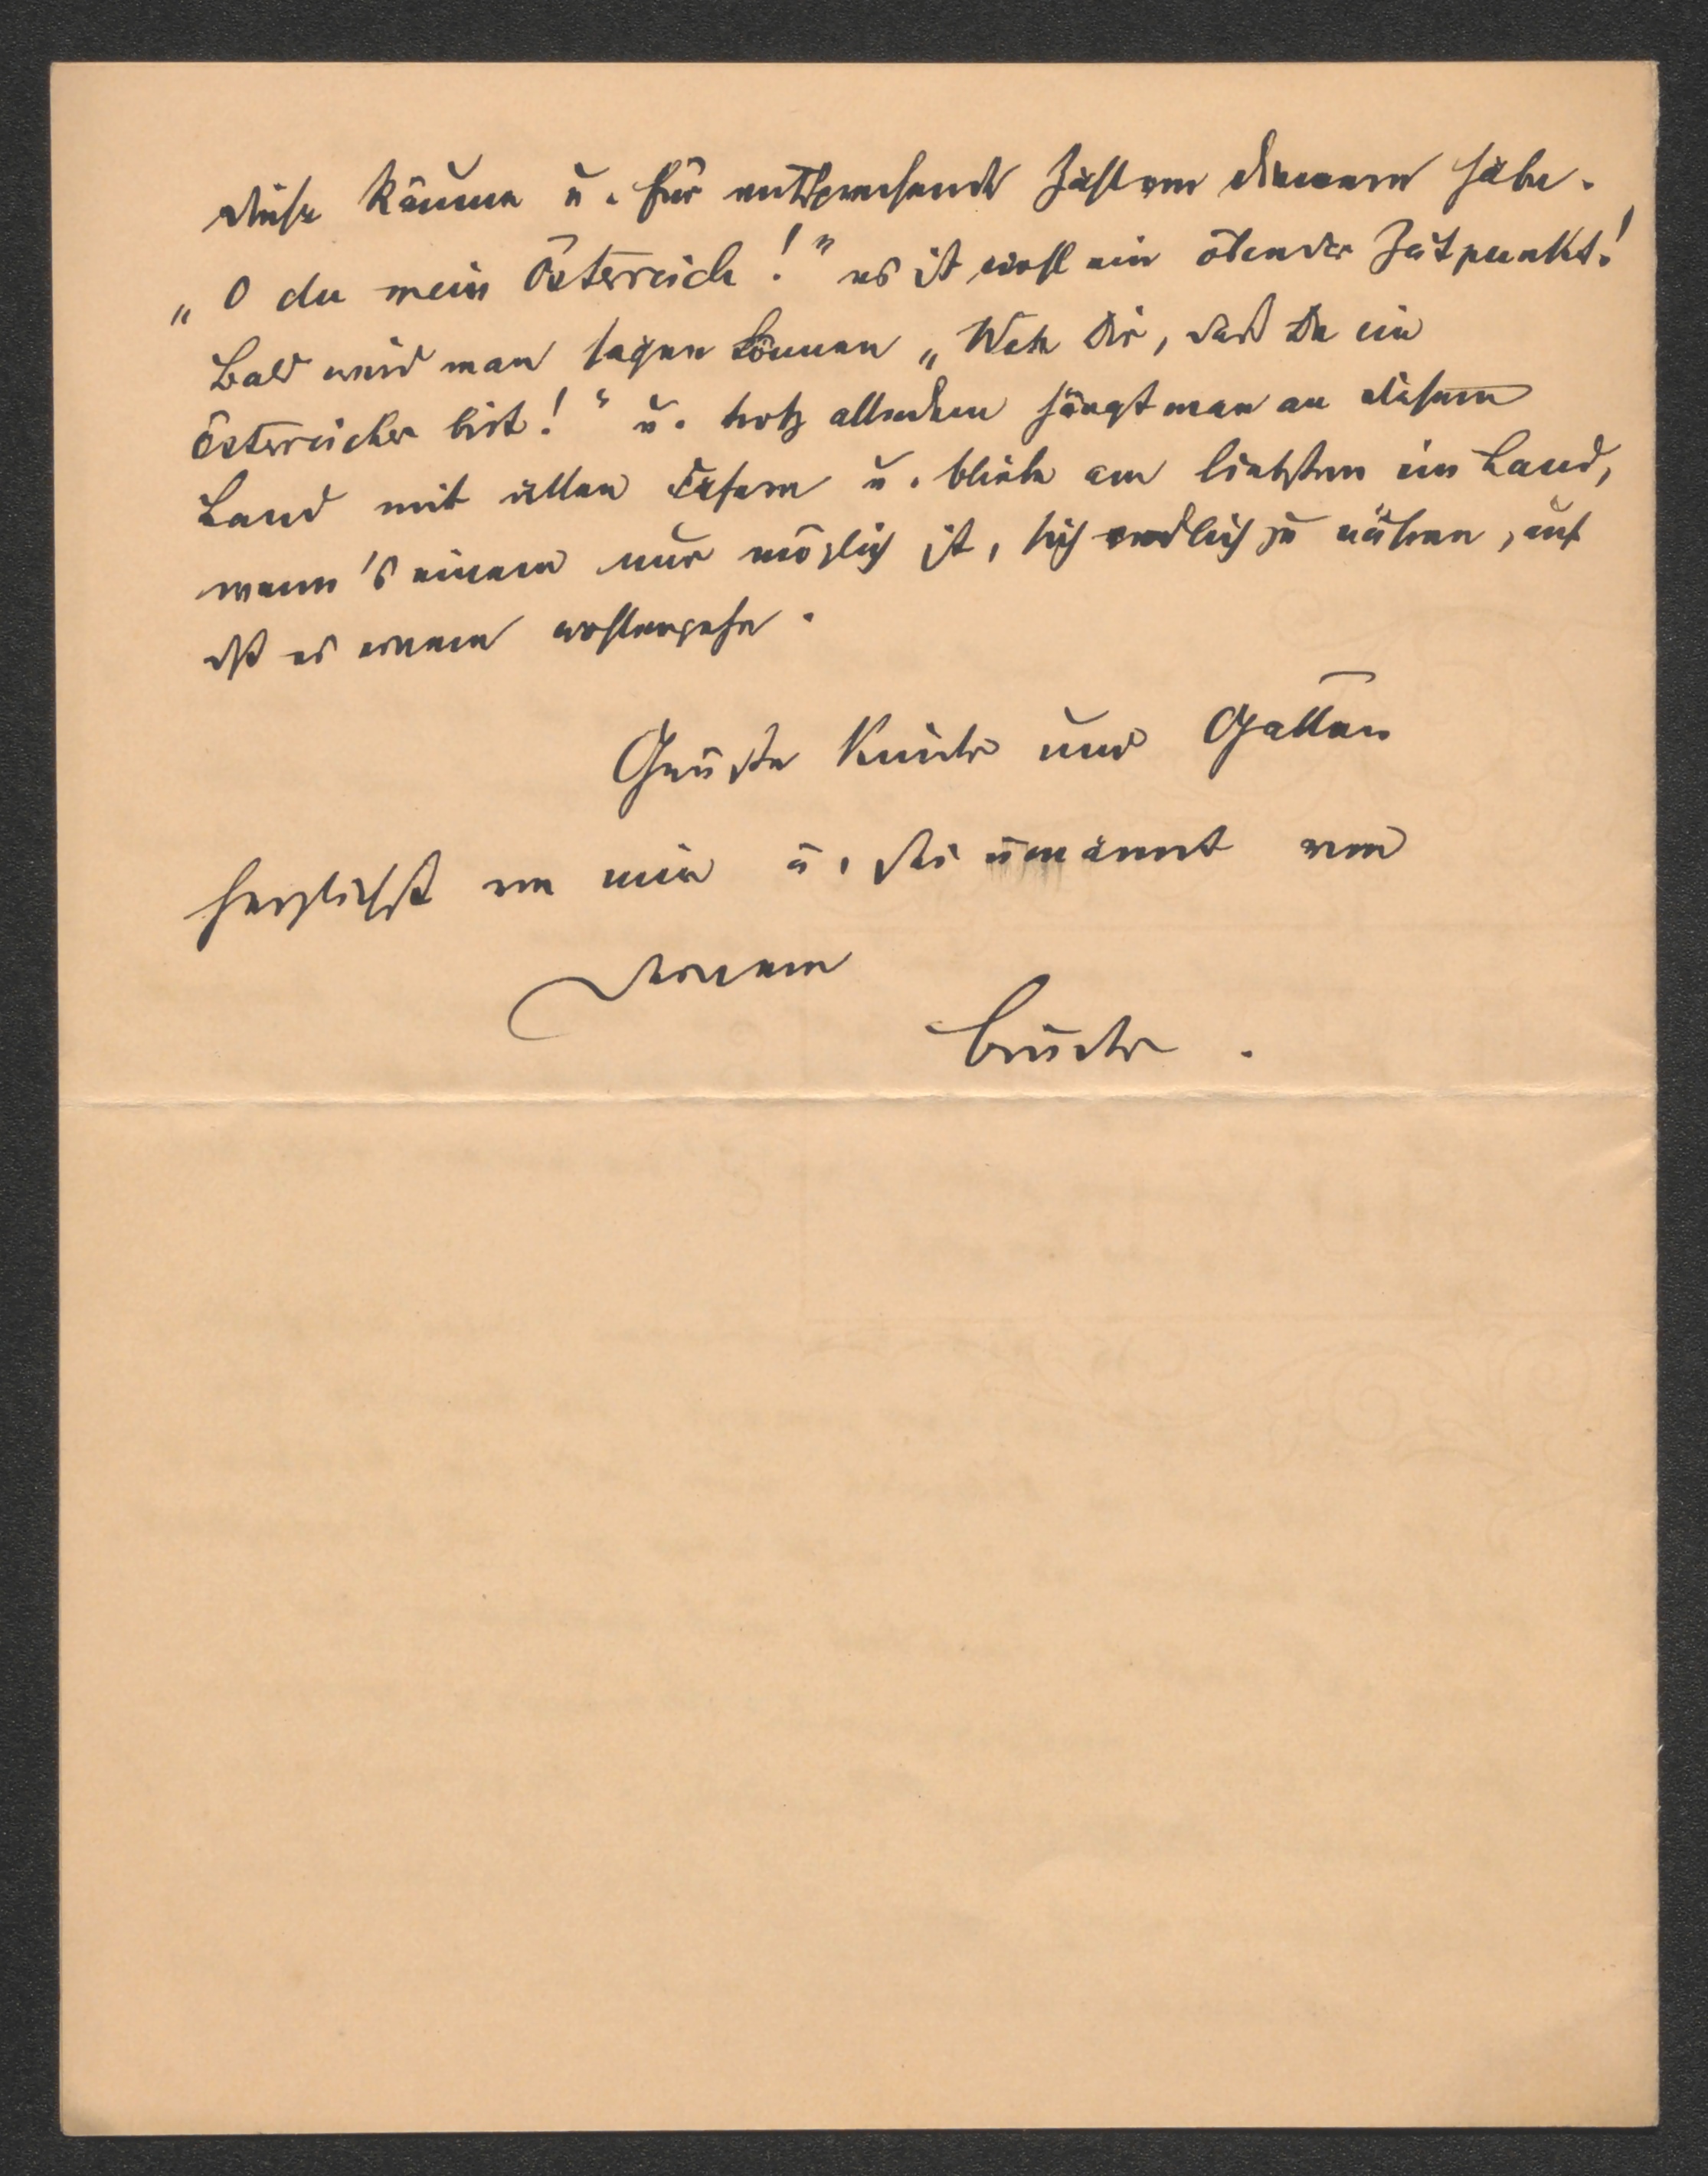 diese Räume u. für entsprechende Zahl von Dienern habe.
„O du mein Österreich!" es ist wohl ein Zeitpunkt!
Bald wird man sagen können „Weh Dir, daß Du ein
Österreicher bist!" u. trotz alledem hängt man an diesem
Land mit allen Fasern u. bliebe am liebsten im Land,
wenn's einem nur möglich ist, sich redlich zu nähren, auf
daß es einem wohlergehe.
Grüße Kinder und Gattin
herzlichst von mir u. sei umarmt von
Deinem
Bruder.